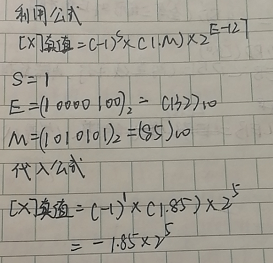 利用公式
[X]真值=(-1)^S×(1.M)×2^E-127
S=1
E=(10000100)₂=(132)₁₀
M=(1010101)₂=(85)₁₀
代入公式
[X]真值=(-1)^1×(1.85)×2^5
=-1.85×2^5